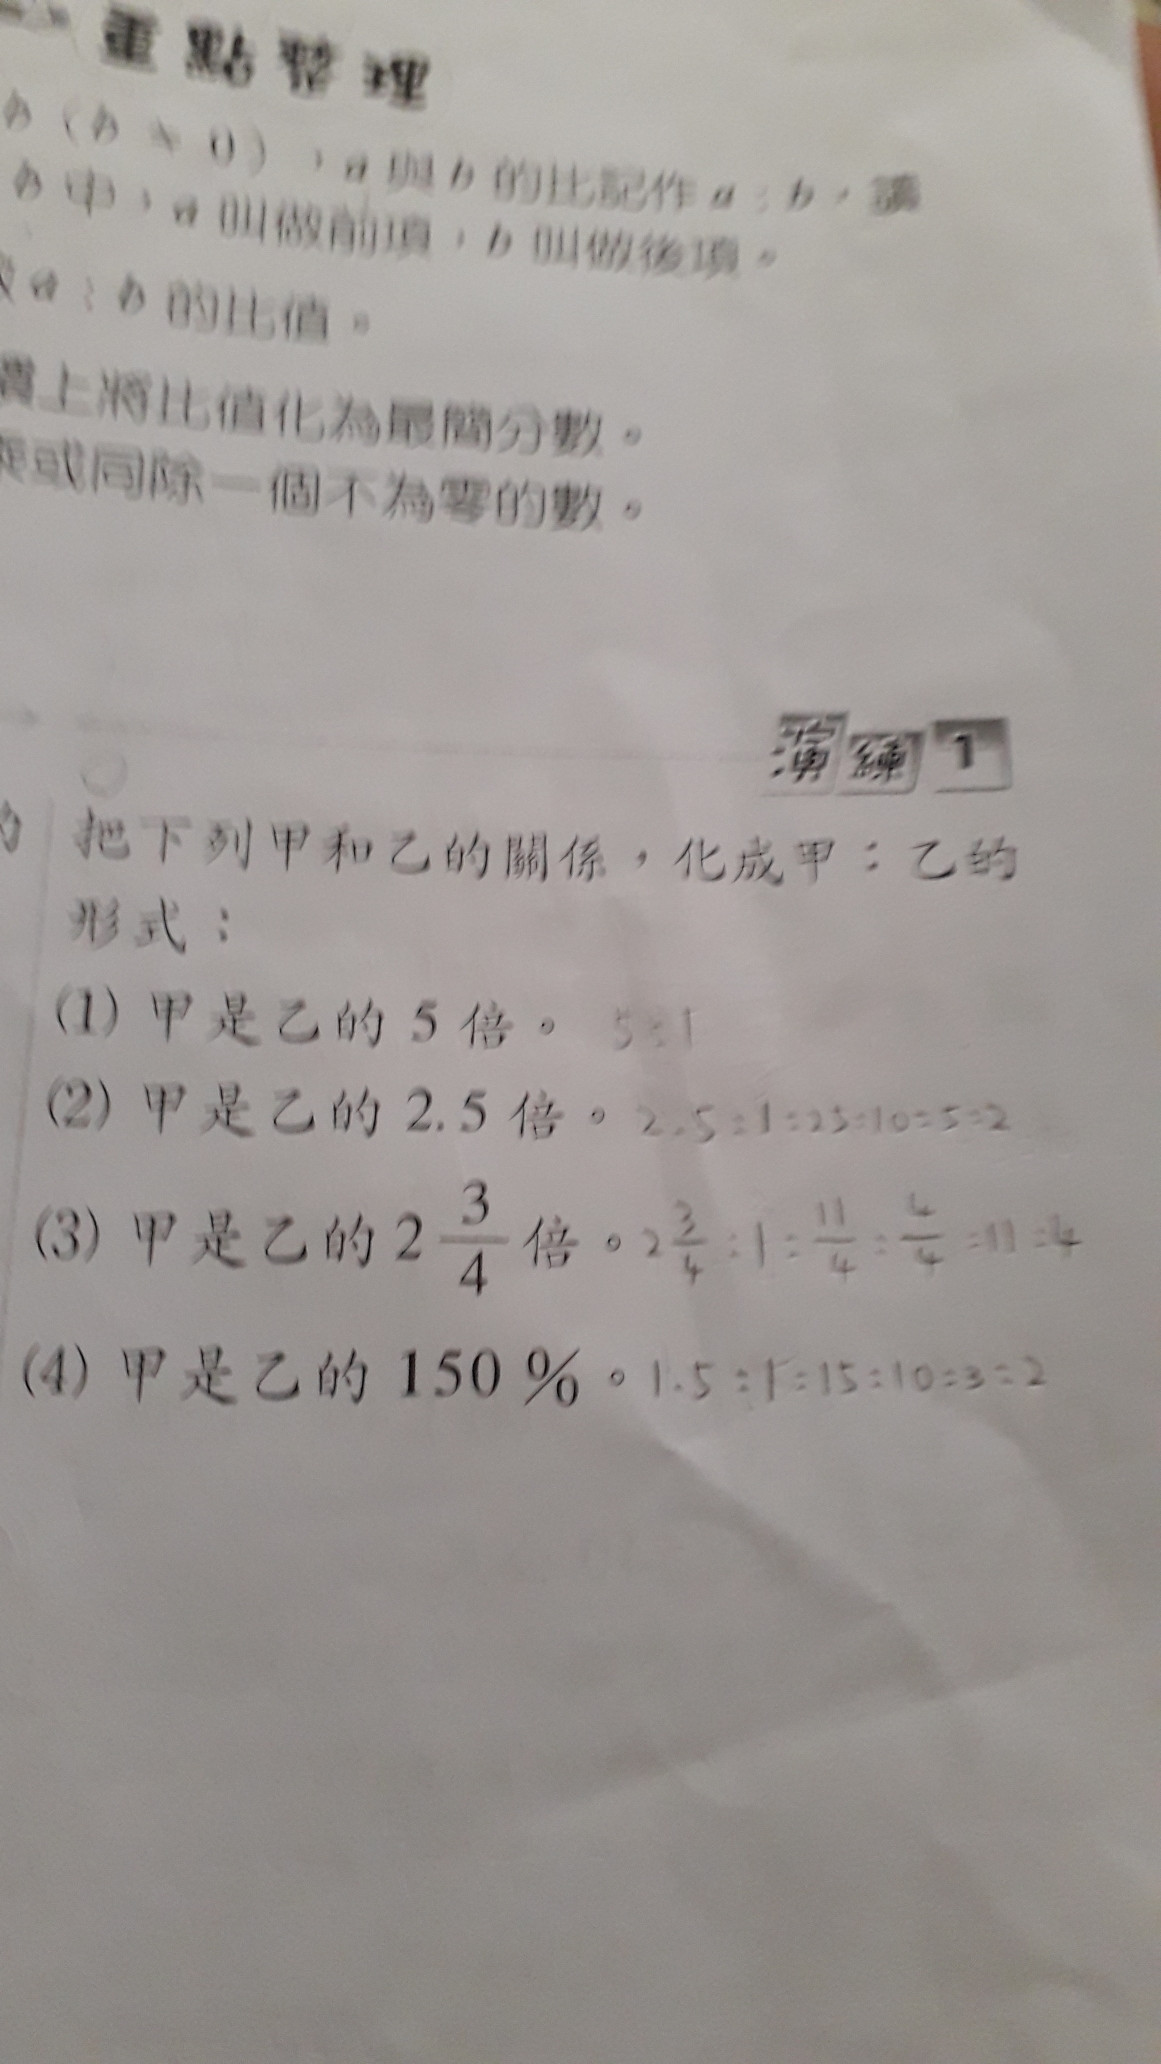 重點整理
b（b≠0），a與b的比記作a：b，讀
b中，a叫做前項，b叫做後項。
a：b的比值。
實上將比值化為最簡分數。
乘或同除一個不為零的數。
演練1
的
把下列甲和乙的關係，化成甲：乙的
形式：
(1) 甲是乙的 5 倍。 5:1
(2) 甲是乙的 2.5 倍。 2.5:1=25:10=5:2
(3) 甲是乙的 2 3/4 倍。 2 3/4 : 1 = 11/4 : 4/4 = 11:4
(4) 甲是乙的 150 %。 1.5:1=15:10=3:2